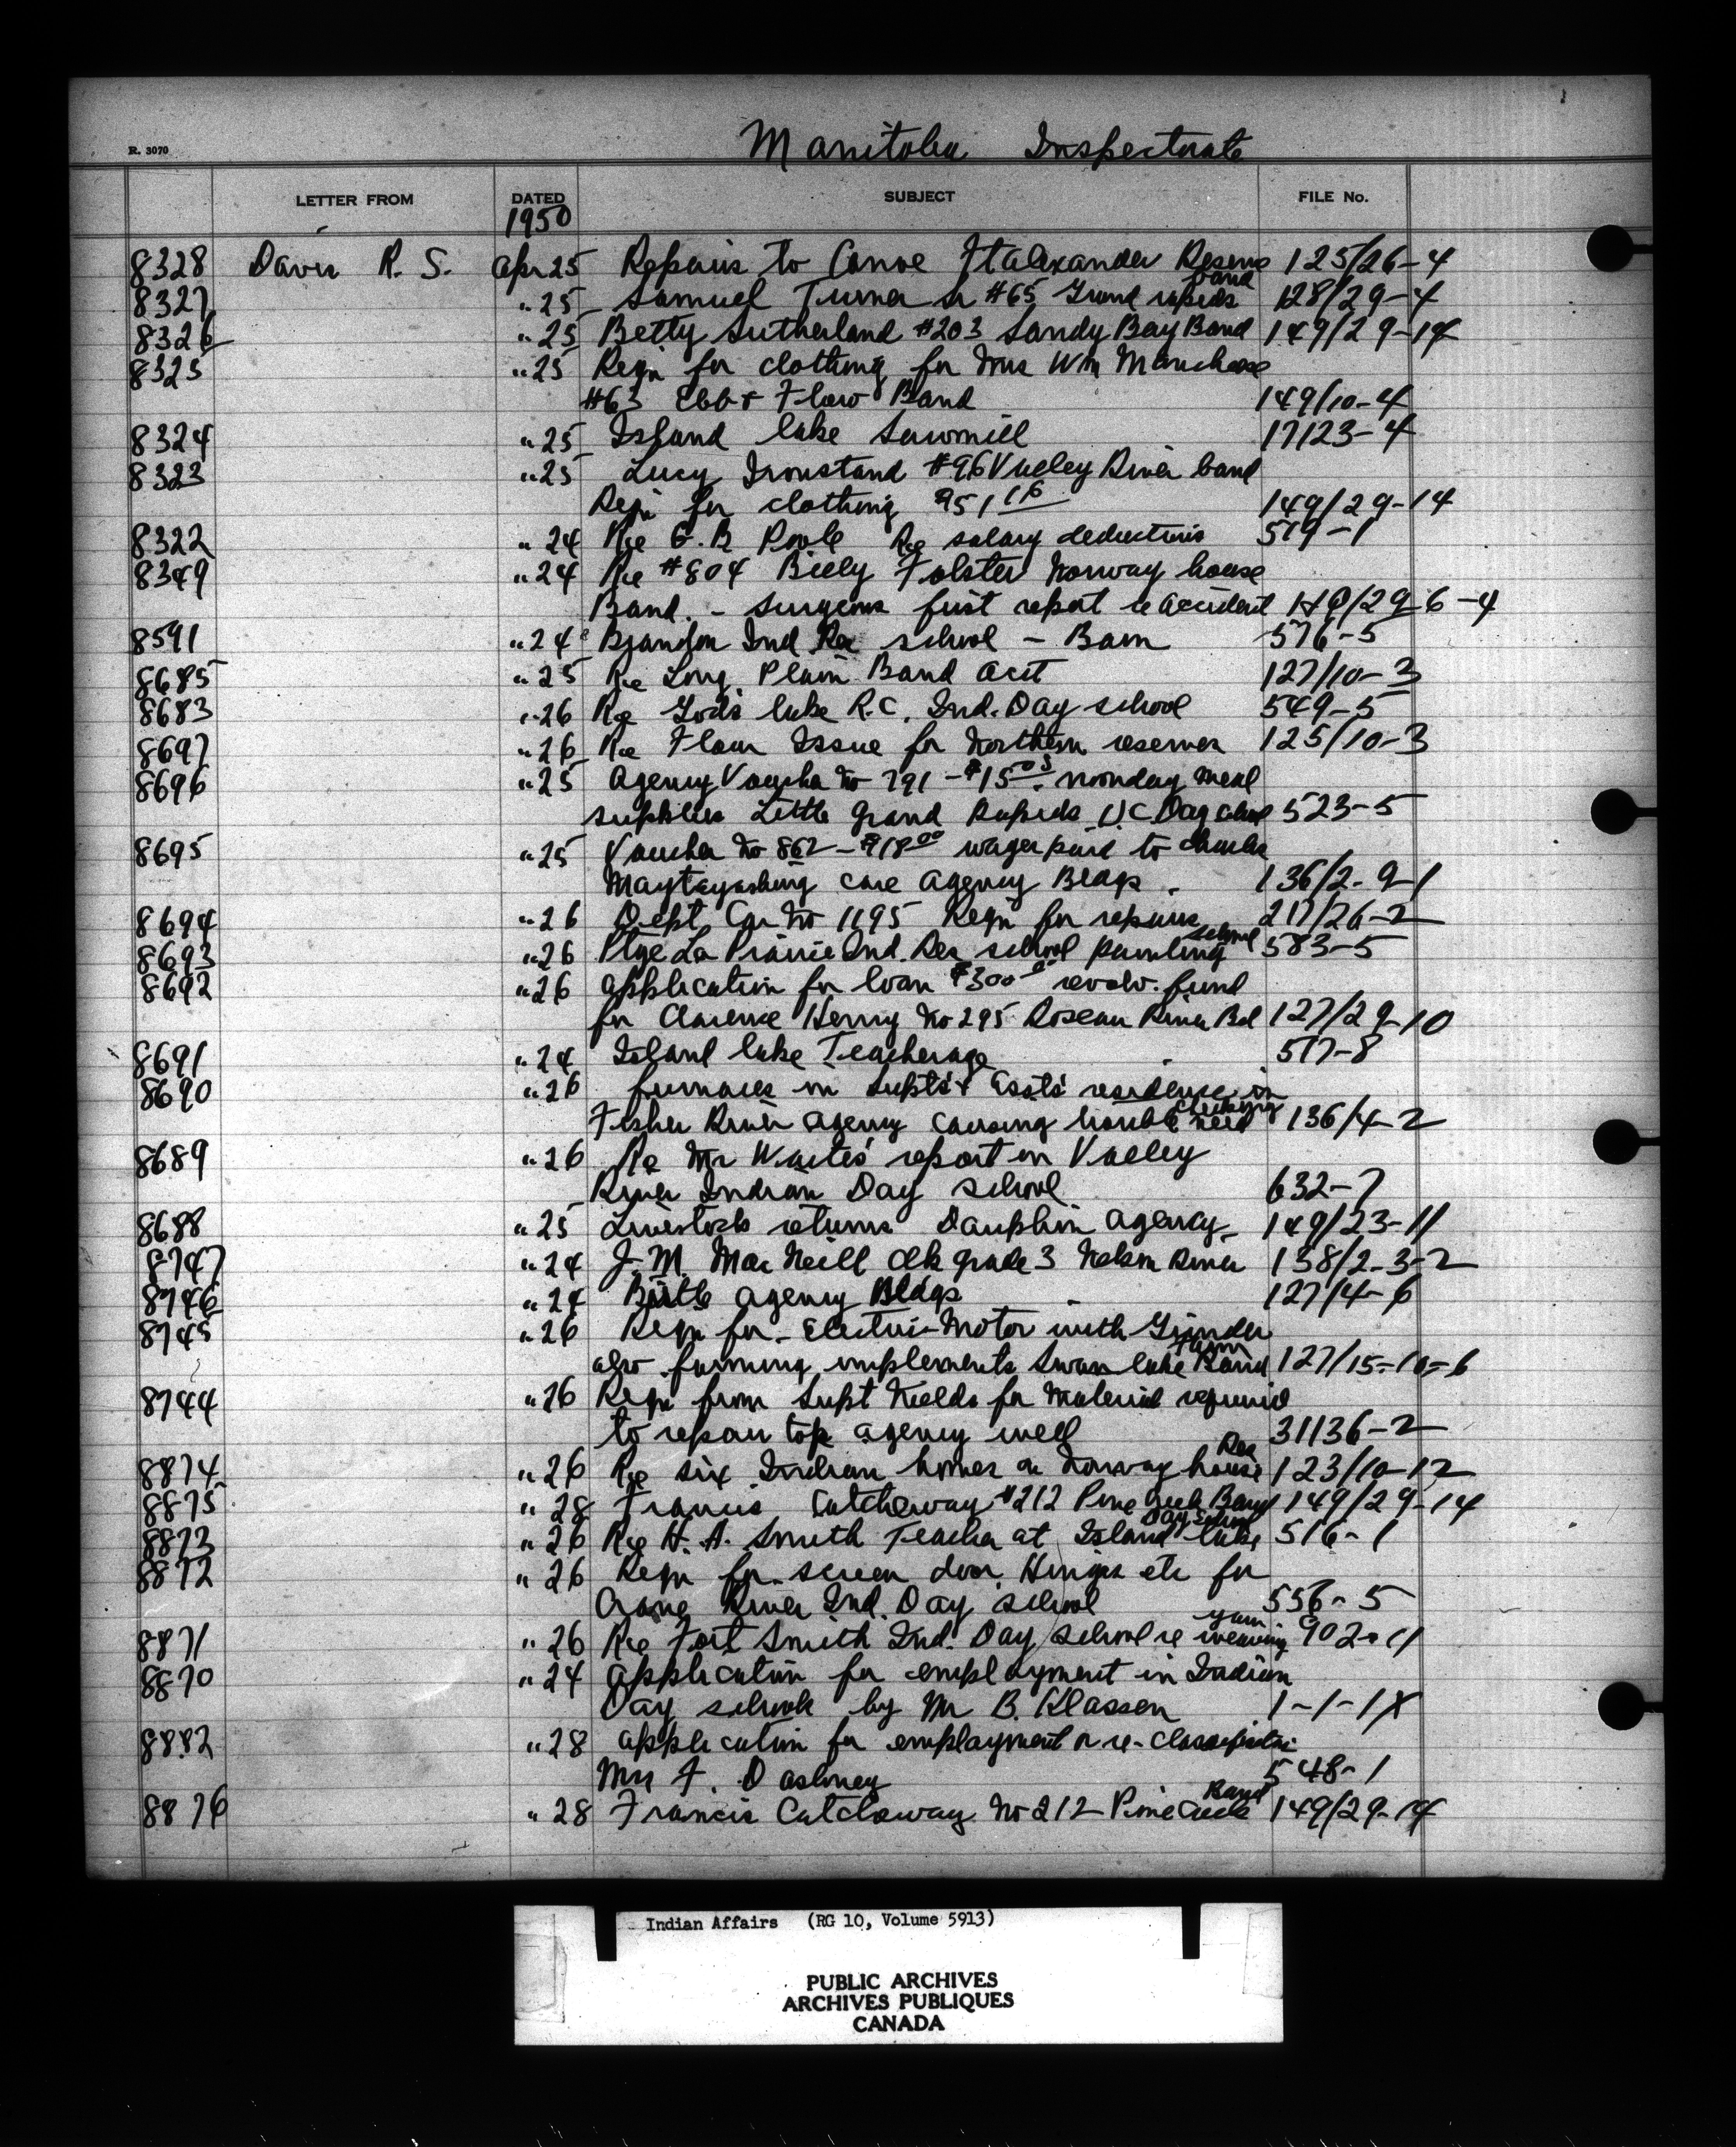 Manitoba Inspectorate
R. 3070
LETTER FROM DATED SUBJECT FILE No.
1950
8328 Davis R. S. Apr 25 Repairs to Canoe Ft Alexander Reserve 125/26-4
8327 " 25 Samuel Turner Sr #65 Grand rapids Band 128/29-4
8326 " 25 Betty Sutherland #203 Sandy Bay Band 149/29-14
8325 " 25 Reqn for clothing for Mrs Wm
#63 Ebb & Flow Band 149/10-4
8324 " 25 Island lake Sawmill 17123-4
8323 " 25 Lucy Ironstand #96 Valley River band
Reqn for clothing 149/29-14
8322 " 24 Re G. B. Poole Re salary deductions 519-1
8349 " 24 Re #804 Billy Folster Norway house
Band - surgeons first report re accident
8591 " 24 Brandon Ind Res school - Barn 576-5
8685 " 25 Re Long Plain Band Acct 127/10-3
8683 " 26 Re Gods lake R.C. Ind. Day school 549-5
8697 " 26 Re Flour Issue for Northern reserves 125/10-3
8696 " 25 Agency Voucher No 791 - $15.05 noonday meal
supplies Little Grand Rapids U.C Day school 523-5
8695 " 25 Voucher No 862 - $18.00 wages paid to Charles
Maytayashing care agency Bldgs. 136/2-9-1
8694 " 26 Dept Car No 1195 Reqn for repairs 217/26-2
8693 " 26 Ptge La Prairie Ind. Res. school painting school 583-5
8692 " 26 application for loan $300.00 revolv. fund
for Clarence Henry No 295 Roseau River Bd 127/29-10
8691 " 24 Island lake Teacherage 517-8
8690 " 26 furnaces in Supts & Assts' residence in
Fisher River agency causing trouble need checking 136/4-2
8689 " 26 Re Mr Waites' report on Valley
River Indian Day school 632-7
8688 " 25 Livestock returns Dauphin agency 149/23-11
8747 " 24 J. M. MacNeill clk grade 3 Nelson River 138/2-3-2
8746 " 24 Birtle agency Bldgs 127/4-6
8745 " 26 Reqn for - Electric Motor with Grinder
also farming implements Swan lake Band Farm 127/15-10-6
8744 " 26 Reqn from Supt Nields for Material required
to repair top agency well 31136-2
8874 " 26 Re six Indian homes on Norway house Res 123/10-12
8875 " 28 Francis Catcheway #212 Pine Creek Band 149/29-14
8873 " 26 Re H. A. Smith Teacher at Island lake Day School 516-1
8872 " 26 Reqn for screen door, Hinges etc for
Crane River Ind. Day school 556-5
8871 " 26 Re Fort Smith Ind. Day school re weaving yarn
8870 " 24 application for employment in Indian
Day schools by Mr B. Klassen 1-1-1X
8882 " 28 application for employment or re-classification
Mrs F. Dashney 548-1
8876 " 28 Francis Catcheway No 212 Pine Creek Band 149/29-14
Indian Affairs (RG 10, Volume 5913)
PUBLIC ARCHIVES
ARCHIVES PUBLIQUES
CANADA